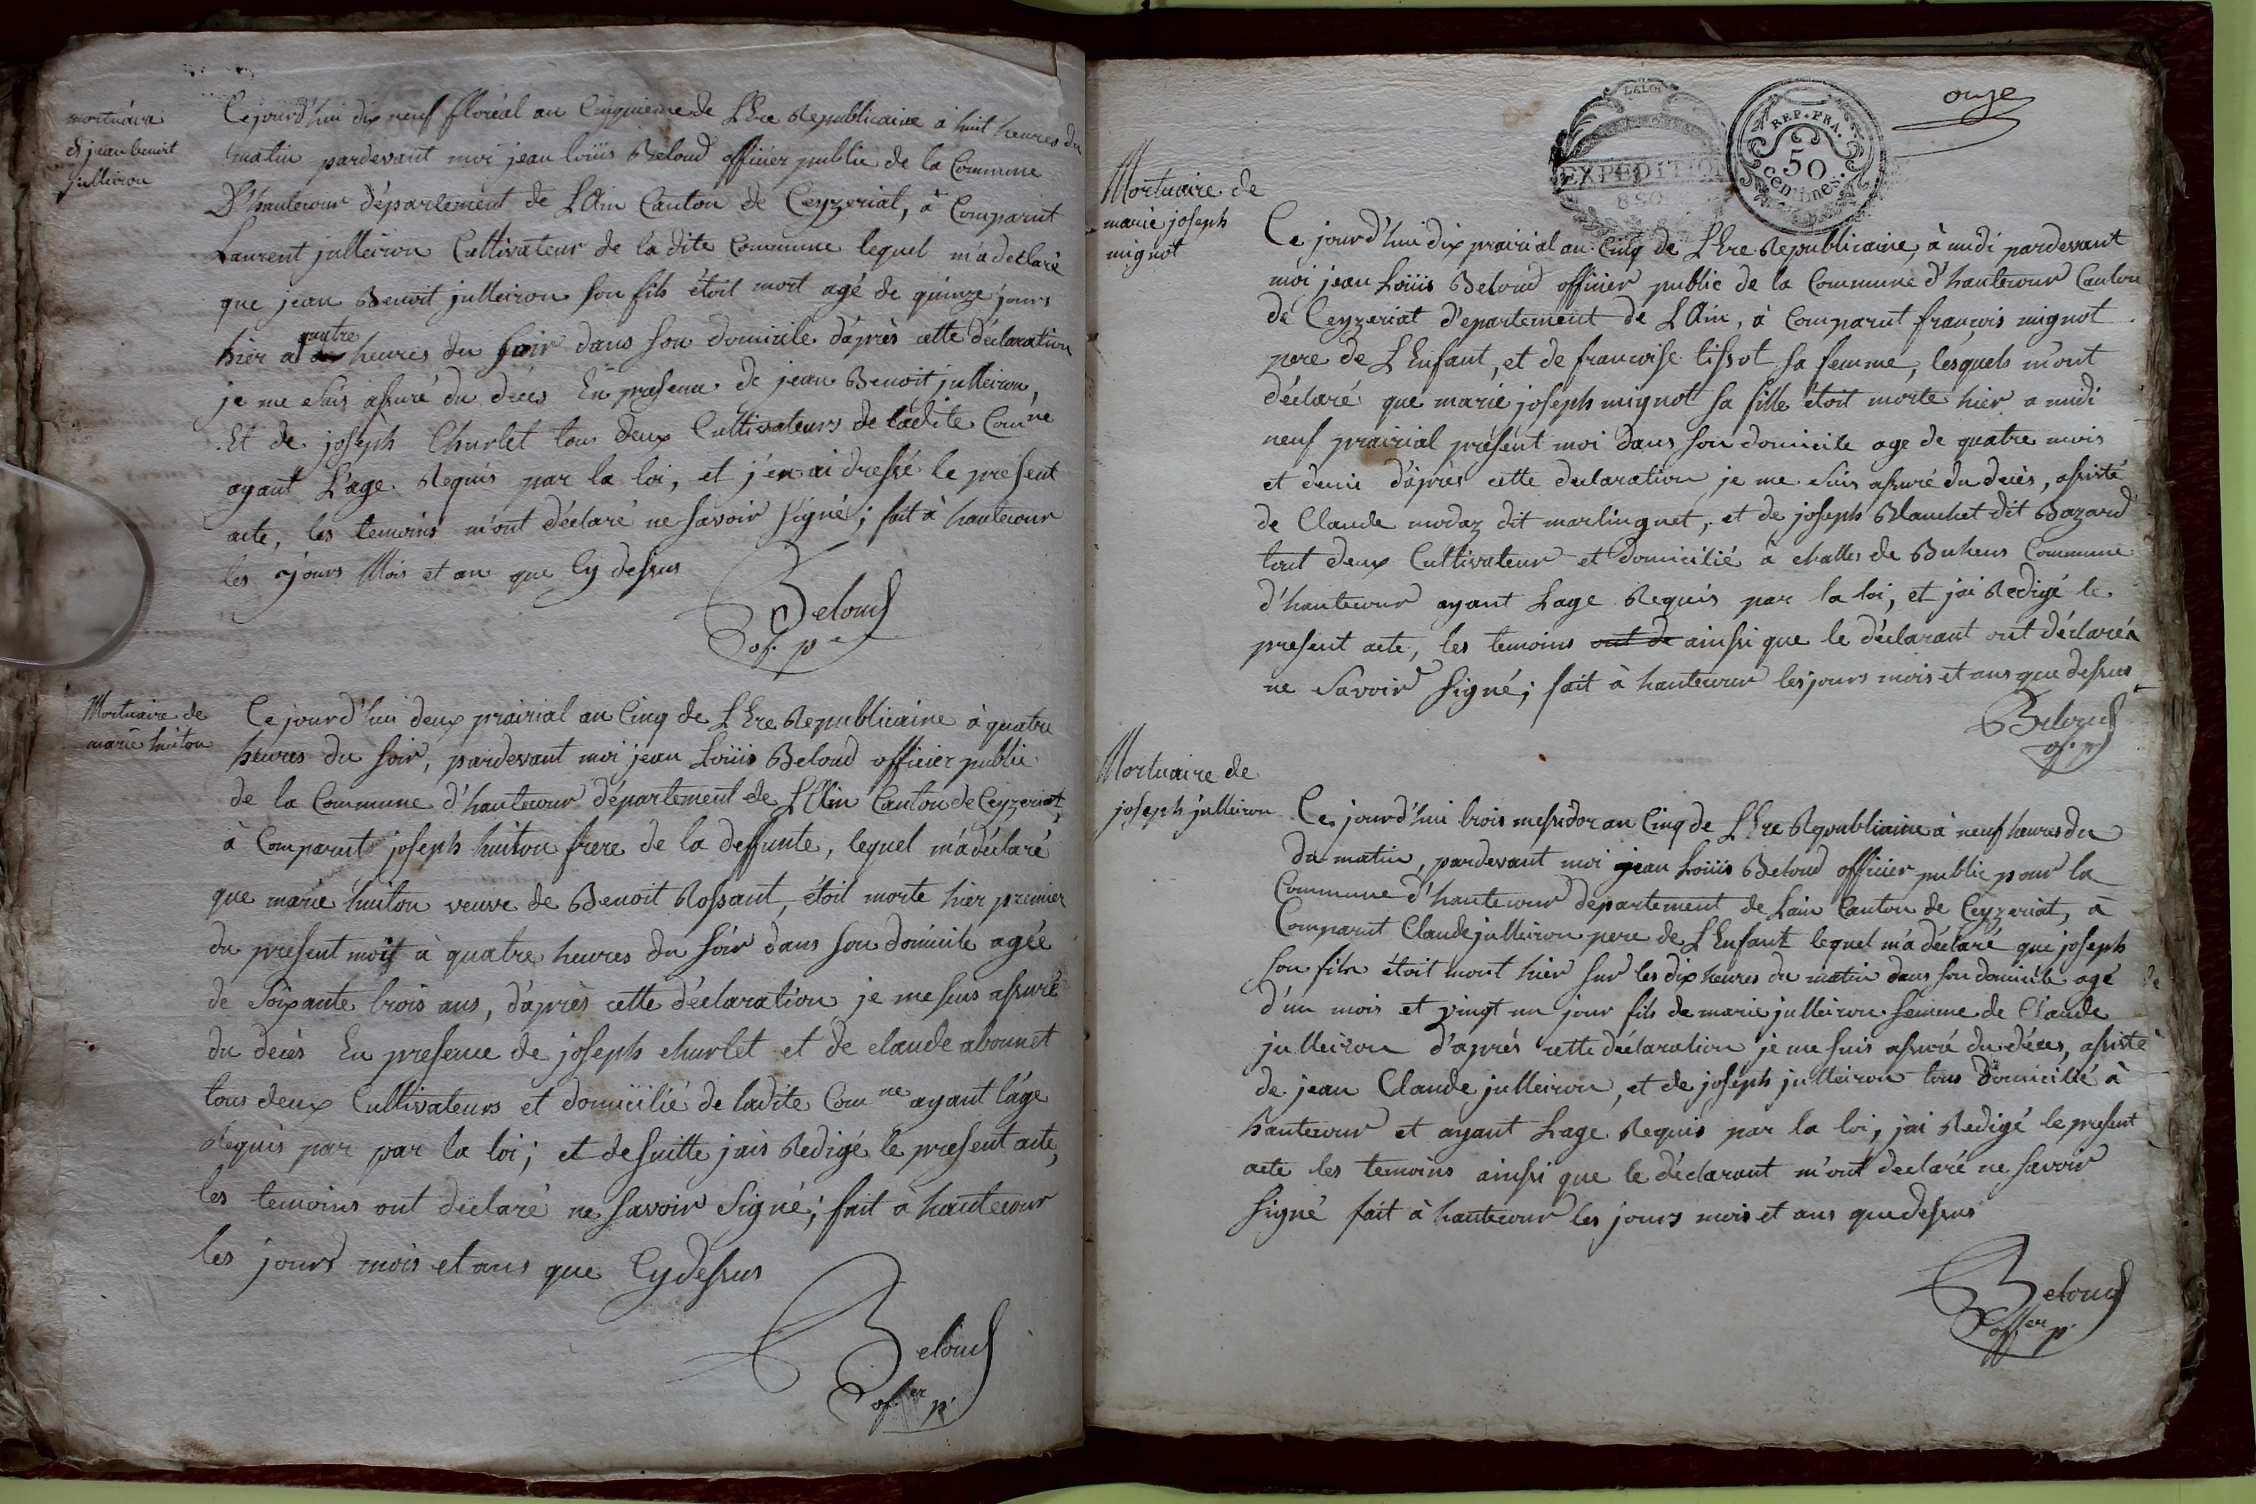 mortuaire
de jean benoit
julleiron
Ce jourd'hui dix neuf floréal an Cinquieme de L'Ere Republicaine à huit heures du
matin pardevant moi jean loüis Beloud officier public de la Commune
D'hautecour département de L'Ain Canton de Ceyzeriat, à Comparut
Laurent julleiron Cultivateur de la dite Commune lequel m'a déclaré
que jean Benoit julleiron son fils étoit mort agé de quinze jours
hier a quatre heures du soir dans son domicile d'après cette déclaration
je me suis assuré du décès En presence de jean Benoit julleiron,
Et de joseph Churlet tous deux Cultivateurs de ladite Com ne
ayant L'age Requis par la loi, et j'en ai dressé le present
acte, les temoins m'ont déclaré ne savoir signé; fait à hautecour
les jours Mois et an que Cy dessus
Beloud
of. p
Mortuaire de
marie huiton
Ce jourd'hui deux prairial an Cinq de L'Ere Republicaine à quatre
heures du soir, pardevant moi jean Loüis Beloud officier public
de la Commune d'hautecour département de L'Ain Canton de Ceyzeriat,
à Comparut joseph huiton frere de la deffunte, lequel m'a déclaré
que marie huiton veuve de Benoit Rossant, étoit morte hier premier
du present mois à quatre heures du soir dans son domicile agée
de soixante trois ans, d'après cette déclaration je me suis assuré
du decès En presence de joseph churlet et de claude abonnet
tous deux Cultivateurs et domicilié de ladite Com ne ayant l'age
Requis par par la loi; et de suitte jais Redigé le present acte,
les temoins ont déclaré ne savoir signé; fait à hautecour
les jours mois et ans que Cydessus
Beloud
of.er p.
LA LOI
EXPEDITION
REP. FRA.
50
centimes
onze
Mortuaire de
marie joseph
mignot
Ce jourd'hui dix prairial an Cinq de L'Ere Republicaine, à midi pardevant
moi jean Loüis Beloud officier public de la Commune d'hautecour Canton
de Ceyzeriat d'epartement de L'Ain, à Comparut françois mignot
pere de L'Enfant, et de francoise tissot sa femme, lesquels m'ont
déclaré que marie joseph mignot sa fille étoit morte hier a midi
neuf prairial présent moi dans son domicile age de quatre mois
et demi d'après cette declaration je me suis assuré du decès, assisté
de Claude modaz dit marlinguet, et de joseph Blanchet dit Bazard
tout deux Cultivateur et domicilié à challes de Buhens Commune
d'hautecour ayant L'age Requis par la loi, et jai Redigé le
present acte, les temoins ont de ainsi que le déclarant ont déclarés
ne savoir signé; fait à hautecour les jours mois et ans que dessus
Beloud
of. p
Mortuaire de
joseph julleiron
Ce jourd'hui trois messidor an Cinq de L'Ere Republicaine à neuf heures du
du matin, pardevant moi jean Loüis Beloud officier public pour la
Commune d'hautecour département de Lain Canton de Ceyzeriat, à
Comparut Claude julleiron pere de L'Enfant lequel m'a déclaré que joseph
son fils étoit mort hier sur les dix heures du matin dans son domicile agé de
d'un mois et vingt un jour fils de marie julleiron femme de Claude
julleiron d'après cette déclaration je me suis assuré du décès, assisté
de jean Claude julleiron, et de joseph julleiron tous domicilié à
hautecour et ayant L'age Requis par la loi, jai Redigé le present
acte les temoins ainsi que le déclarant m'ont declaré ne savoir
signé fait à hautecour les jours mois et ans que dessus
Beloud
off.er p.